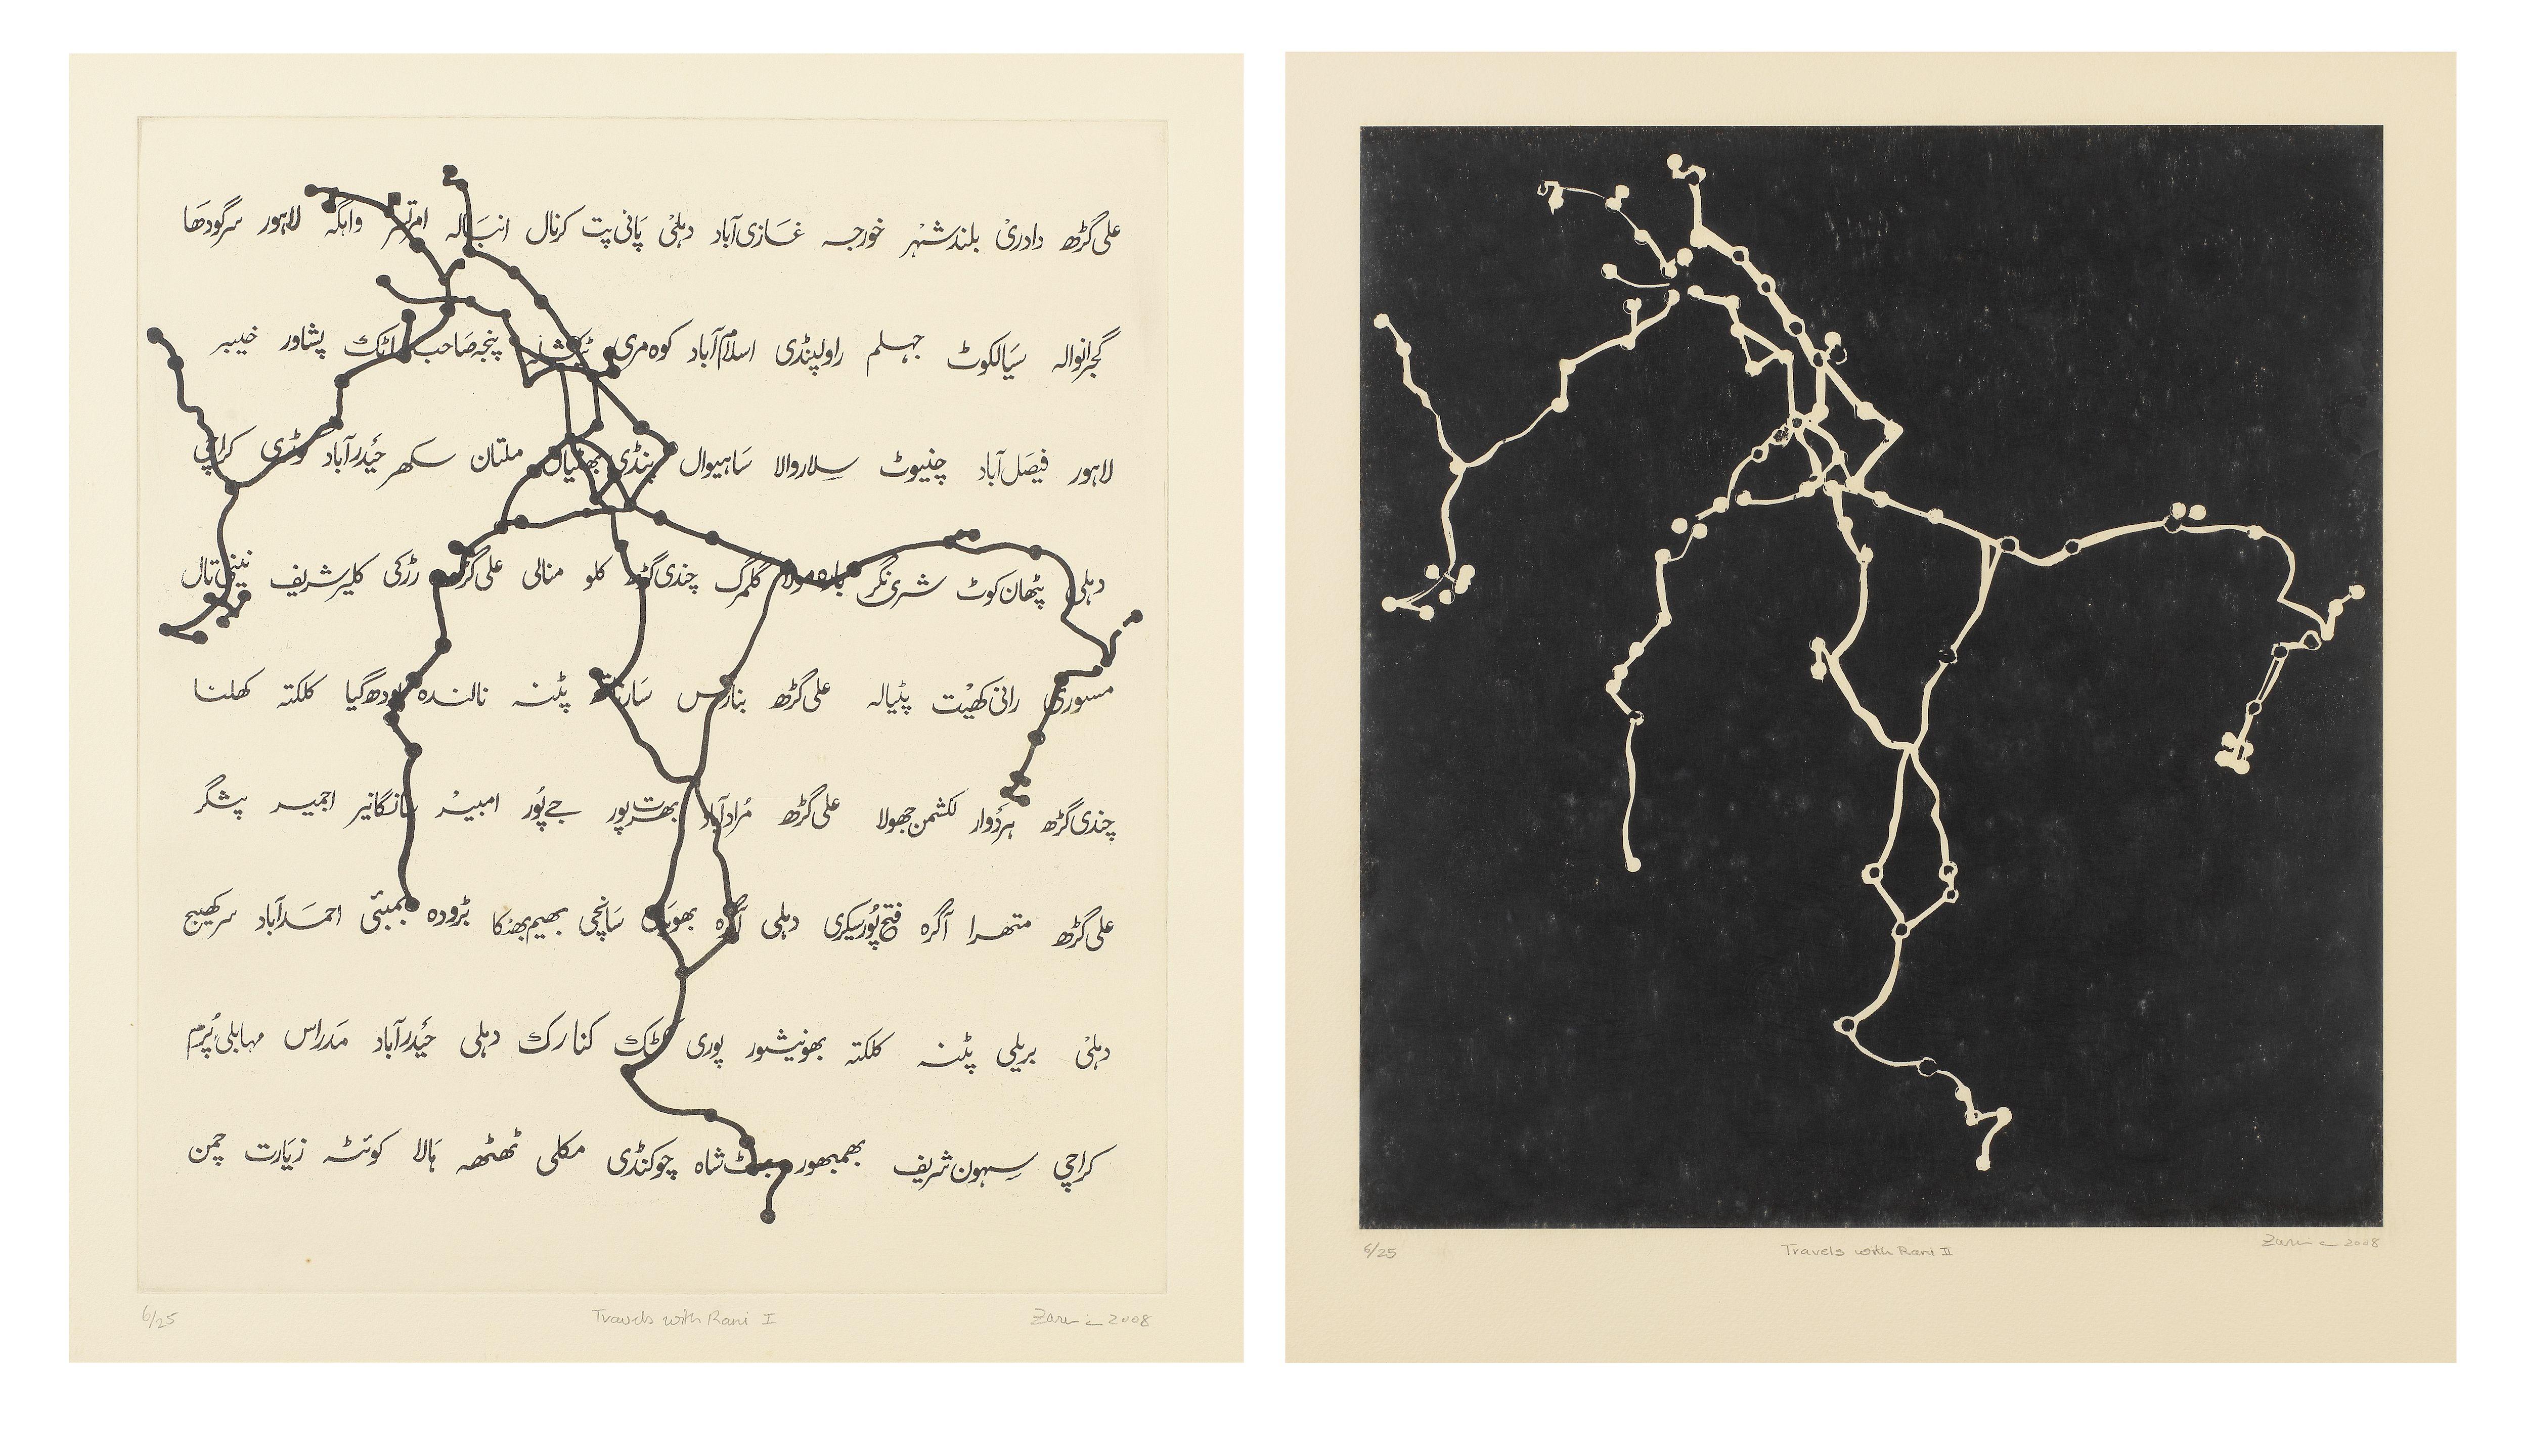 علی گڑھ دادری بلندشہر خورجہ غازی آباد دہلی پانی پت کرنال انبالہ امرتسر واہگہ لاہور سرگودھا
گجرانوالہ سیالکوٹ جہلم راولپنڈی اسلام آباد کوہ مری ٹیکشلا پنجہ صاحب اٹک پشاور خیبر
لاہور فیصل آباد چنیوٹ سلاروالا ساہیوال پنڈی بھٹیاں ملتان سکھر حیدرآباد کوٹری کراچی
دہلی پٹھان کوٹ شری نگر بارہ مولا گلمرگ چندی گڑھ کلو منالی علی گڑھ رڑکی کلیر شریف نینی تال
مسوری رانی کھیت پٹیالہ علی گڑھ بنارس سارناتھ پٹنہ نالندہ بودھ گیا کلکتہ کھلنا
چندی گڑھ ہردوار لکشمن جھولا علی گڑھ مُرادآباد بھرت پور جے پُور امبیر سانگانیر اجمیر پشگر
علی گڑھ متھرا آگرہ فتح پُور سیکری دہلی آگرہ بھوپال سانچی بھیم بھٹکا بڑودہ بمبئی احمدآباد سرکھیج
دہلی بریلی پٹنہ کلکتہ بھونیشور پوری کٹک کنارک دہلی حیدرآباد مدراس مہابلی پُرم
کراچی سہون شریف بھمبھور بھٹ شاہ چوکنڈی مکلی ٹھٹھہ ہالا کوئٹہ زیارت چمن
6/25 Travels with Rani I Zarina 2008
6/25 Travels with Rani II Zarina 2008